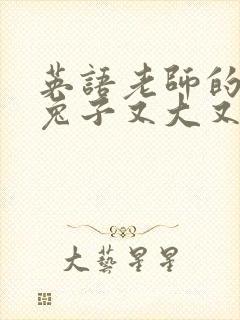 英語老師的
兔子又大又
大藝星星